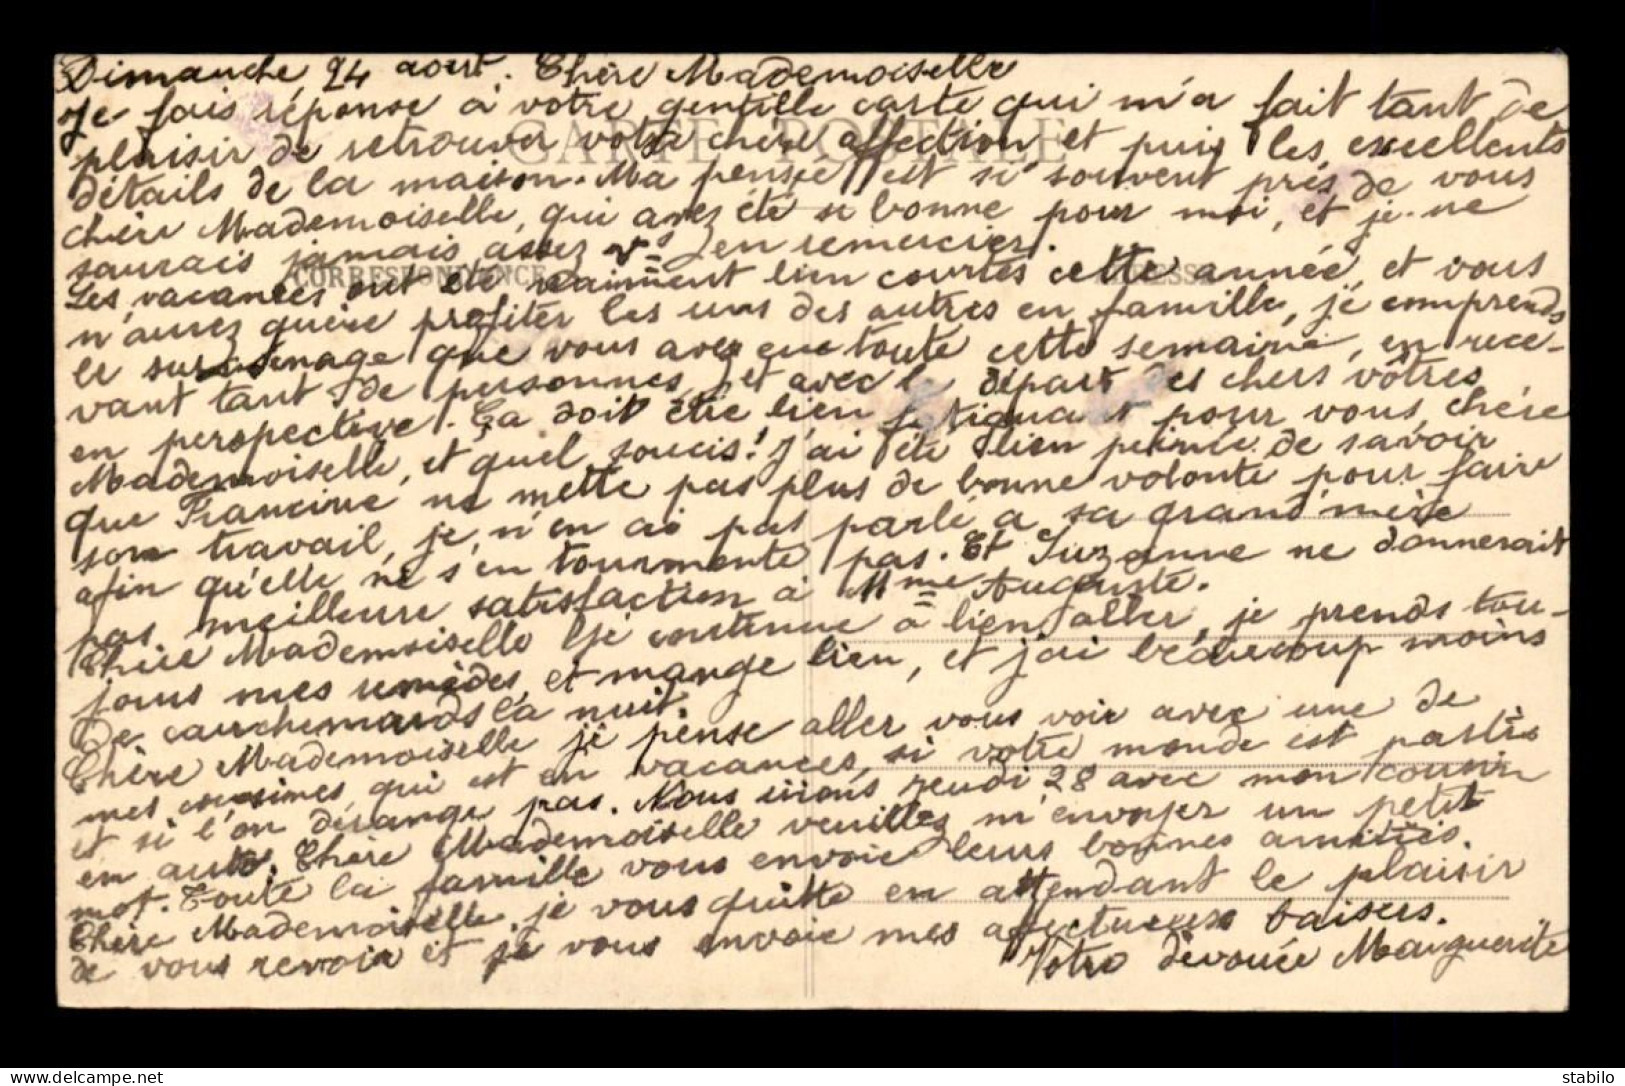 Dimanche 24 aout. Chère Mademoiselle
Je fais réponse à votre gentille carte qui m'a fait tant de
plaisir de retrouver votre chère affection et puis les excellents
détails de la maison. Ma pensée est si souvent près de vous
chère Mademoiselle, qui avez été si bonne pour moi, et je ne
saurais jamais assez vs en remercier.
Les vacances ont été vraiment bien courtes cette année, et vous
n'aurez guère profiter les uns des autres en famille, je comprends
le surmenage que vous avez eue toute cette semaine, en rece-
vant tant de personnes, et avec le départ des chers vôtres
en perspective. Ça doit être bien fatiguant pour vous chère
Mademoiselle, et quel soucis! J'ai été bien peinée de savoir
que Francine ne mette pas plus de bonne volonté pour faire
son travail, je n'en ai pas parlé à sa grand'mère
afin qu'elle ne s'en tourmente pas. Et Suzanne ne donnerait
pas meilleure satisfaction à Mme Auguste.
Chère Mademoiselle je continue à bien aller, je prends tou-
jours mes remèdes, et mange bien, et j'ai beaucoup moins
de cauchemards la nuit.
Chère Mademoiselle je pense aller vous voir avec une de
mes cousines qui est en vacances, si votre monde est partis
et si l'on dérange pas. Nous irions jeudi 28 avec mon cousin
en auto. Chère Mademoiselle veuillez m'envoyer un petit
mot. Toute la famille vous envoie leurs bonnes amitiés.
Chère Mademoiselle, je vous quitte en attendant le plaisir
de vous revoir et je vous envoie mes affectueux baisers.
Votre dévouée Marguerite
CARTE POSTALE
CORRESPONDANCE
delcampe stabilo